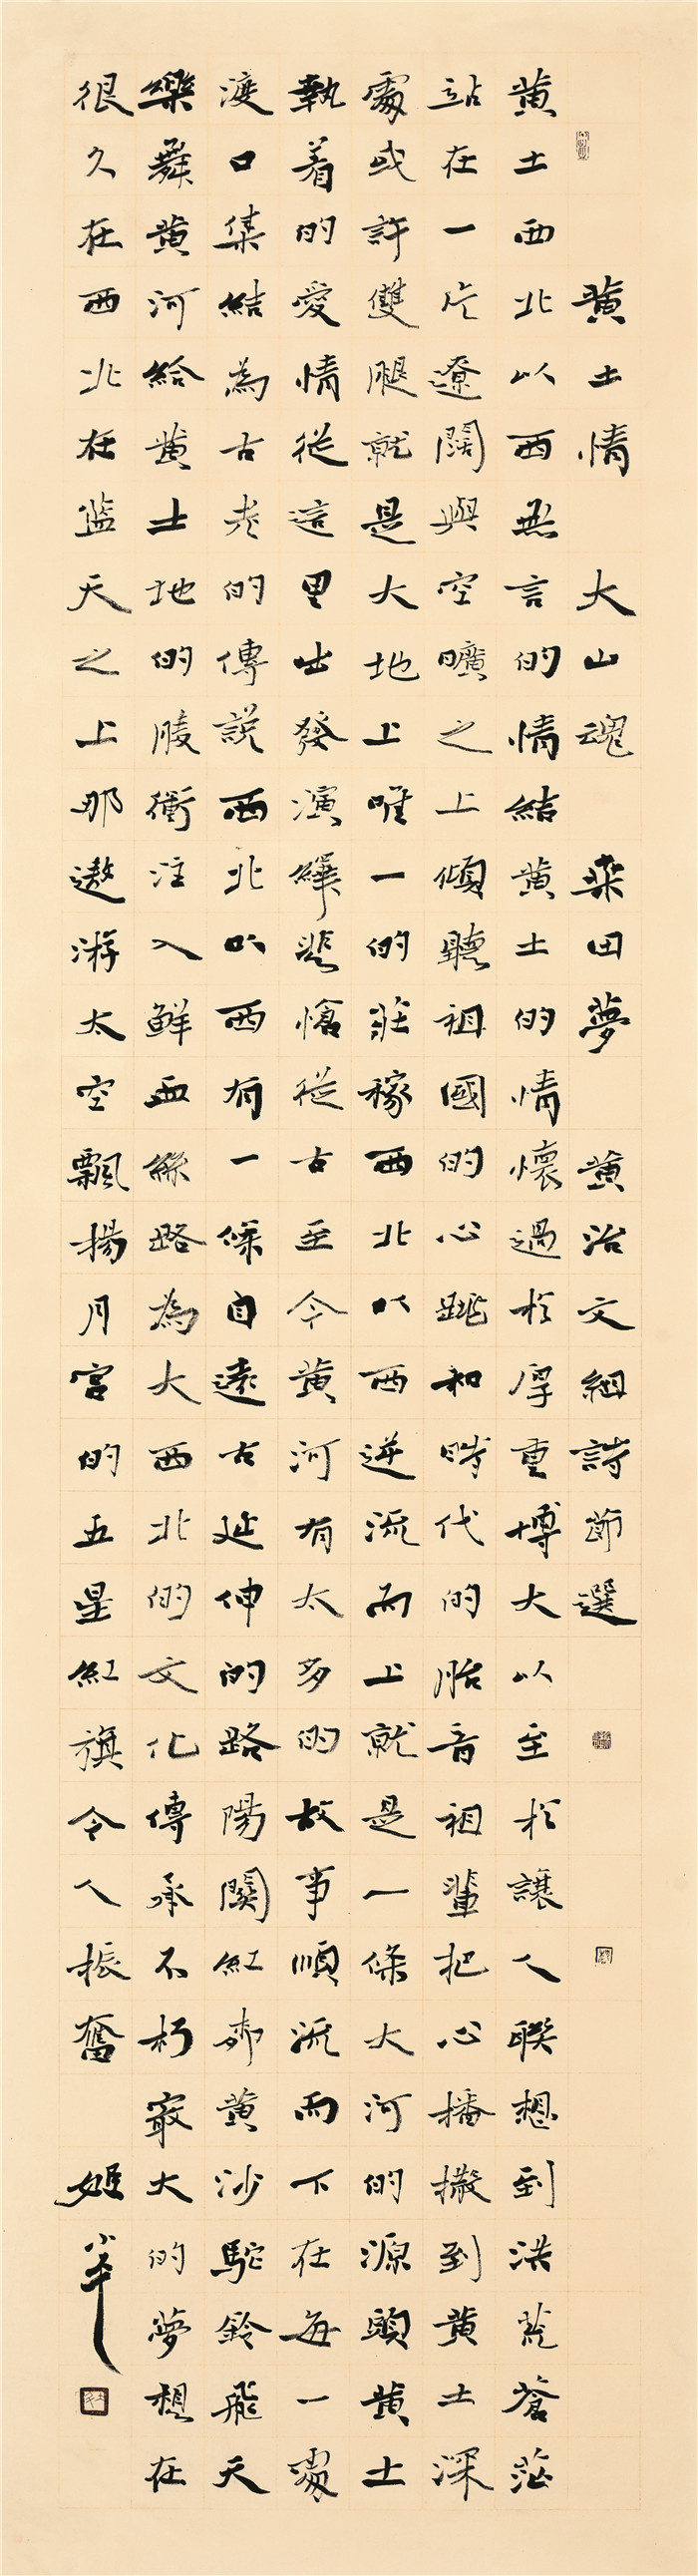 黄土情 大山魂 桑田夢 黄治文組詩節選
黄土西北以西無言的情結黄土的情懷過於厚重博大以至於讓人聯想到洪荒蒼茫
站在一片遼闊與空曠之上傾聽祖國的心跳和時代的胎音祖輩把心播撒到黄土深
處或許雙腿就是大地上唯一的莊稼西北以西逆流而上就是一條大河的源頭黄土
執着的愛情從這里出發演繹悲愴從古至今黄河有太多的故事順流而下在每一處
渡口集結為古老的傳説西北以西有一條自遠古延伸的路陽關紅柳黄沙駝鈴飛天
樂舞黄河給黄土地的胸衝注入鮮血絲路為大西北的文化傳承不朽最大的夢想在
很久在西北在藍天之上那遨游太空飄揚月宮的五星紅旗令人振奮 姬